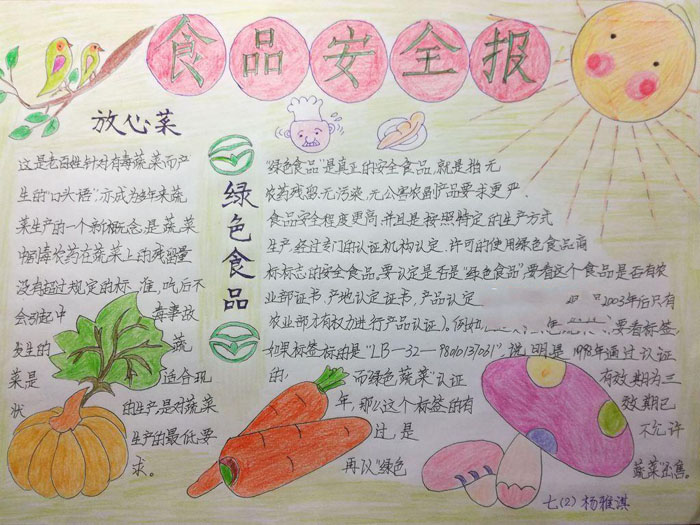 食品安全报
放心菜
这是老百姓针对有毒蔬菜而产
生的"口头语"亦成为多年来蔬
菜生产的一个新概念,是蔬菜
中间毒农药在蔬菜上的残留量
没有超过规定的标准,吃后不
会引起中毒事故
发生的蔬
菜是适合现
状的生产是对蔬菜
生产的最低要
求。
绿色食品
"绿色食品"是真正的安全食品,就是指无
农药残留,无污染,无公害农副产品要求更严
食品安全程度更高,并且是按照特定的生产方式
生产,经过专门的认证机构认定,许可的使用绿色食品商
标标志的安全食品,要认定是否是"绿色食品"要看这个食品是否有农
业部证书,产地认定证书,产品认定 2003年后只有
农业部才有权力进行产品认证)。例如 要看标签,
如果标签标的是"LB-32-9801013061",说明是1998年通过认证
的,而绿色蔬菜"认证有效期为三
年,那么这个标签的有效期已
过,是不允许
再以"绿色蔬菜"出售。
七(2) 杨雅淇